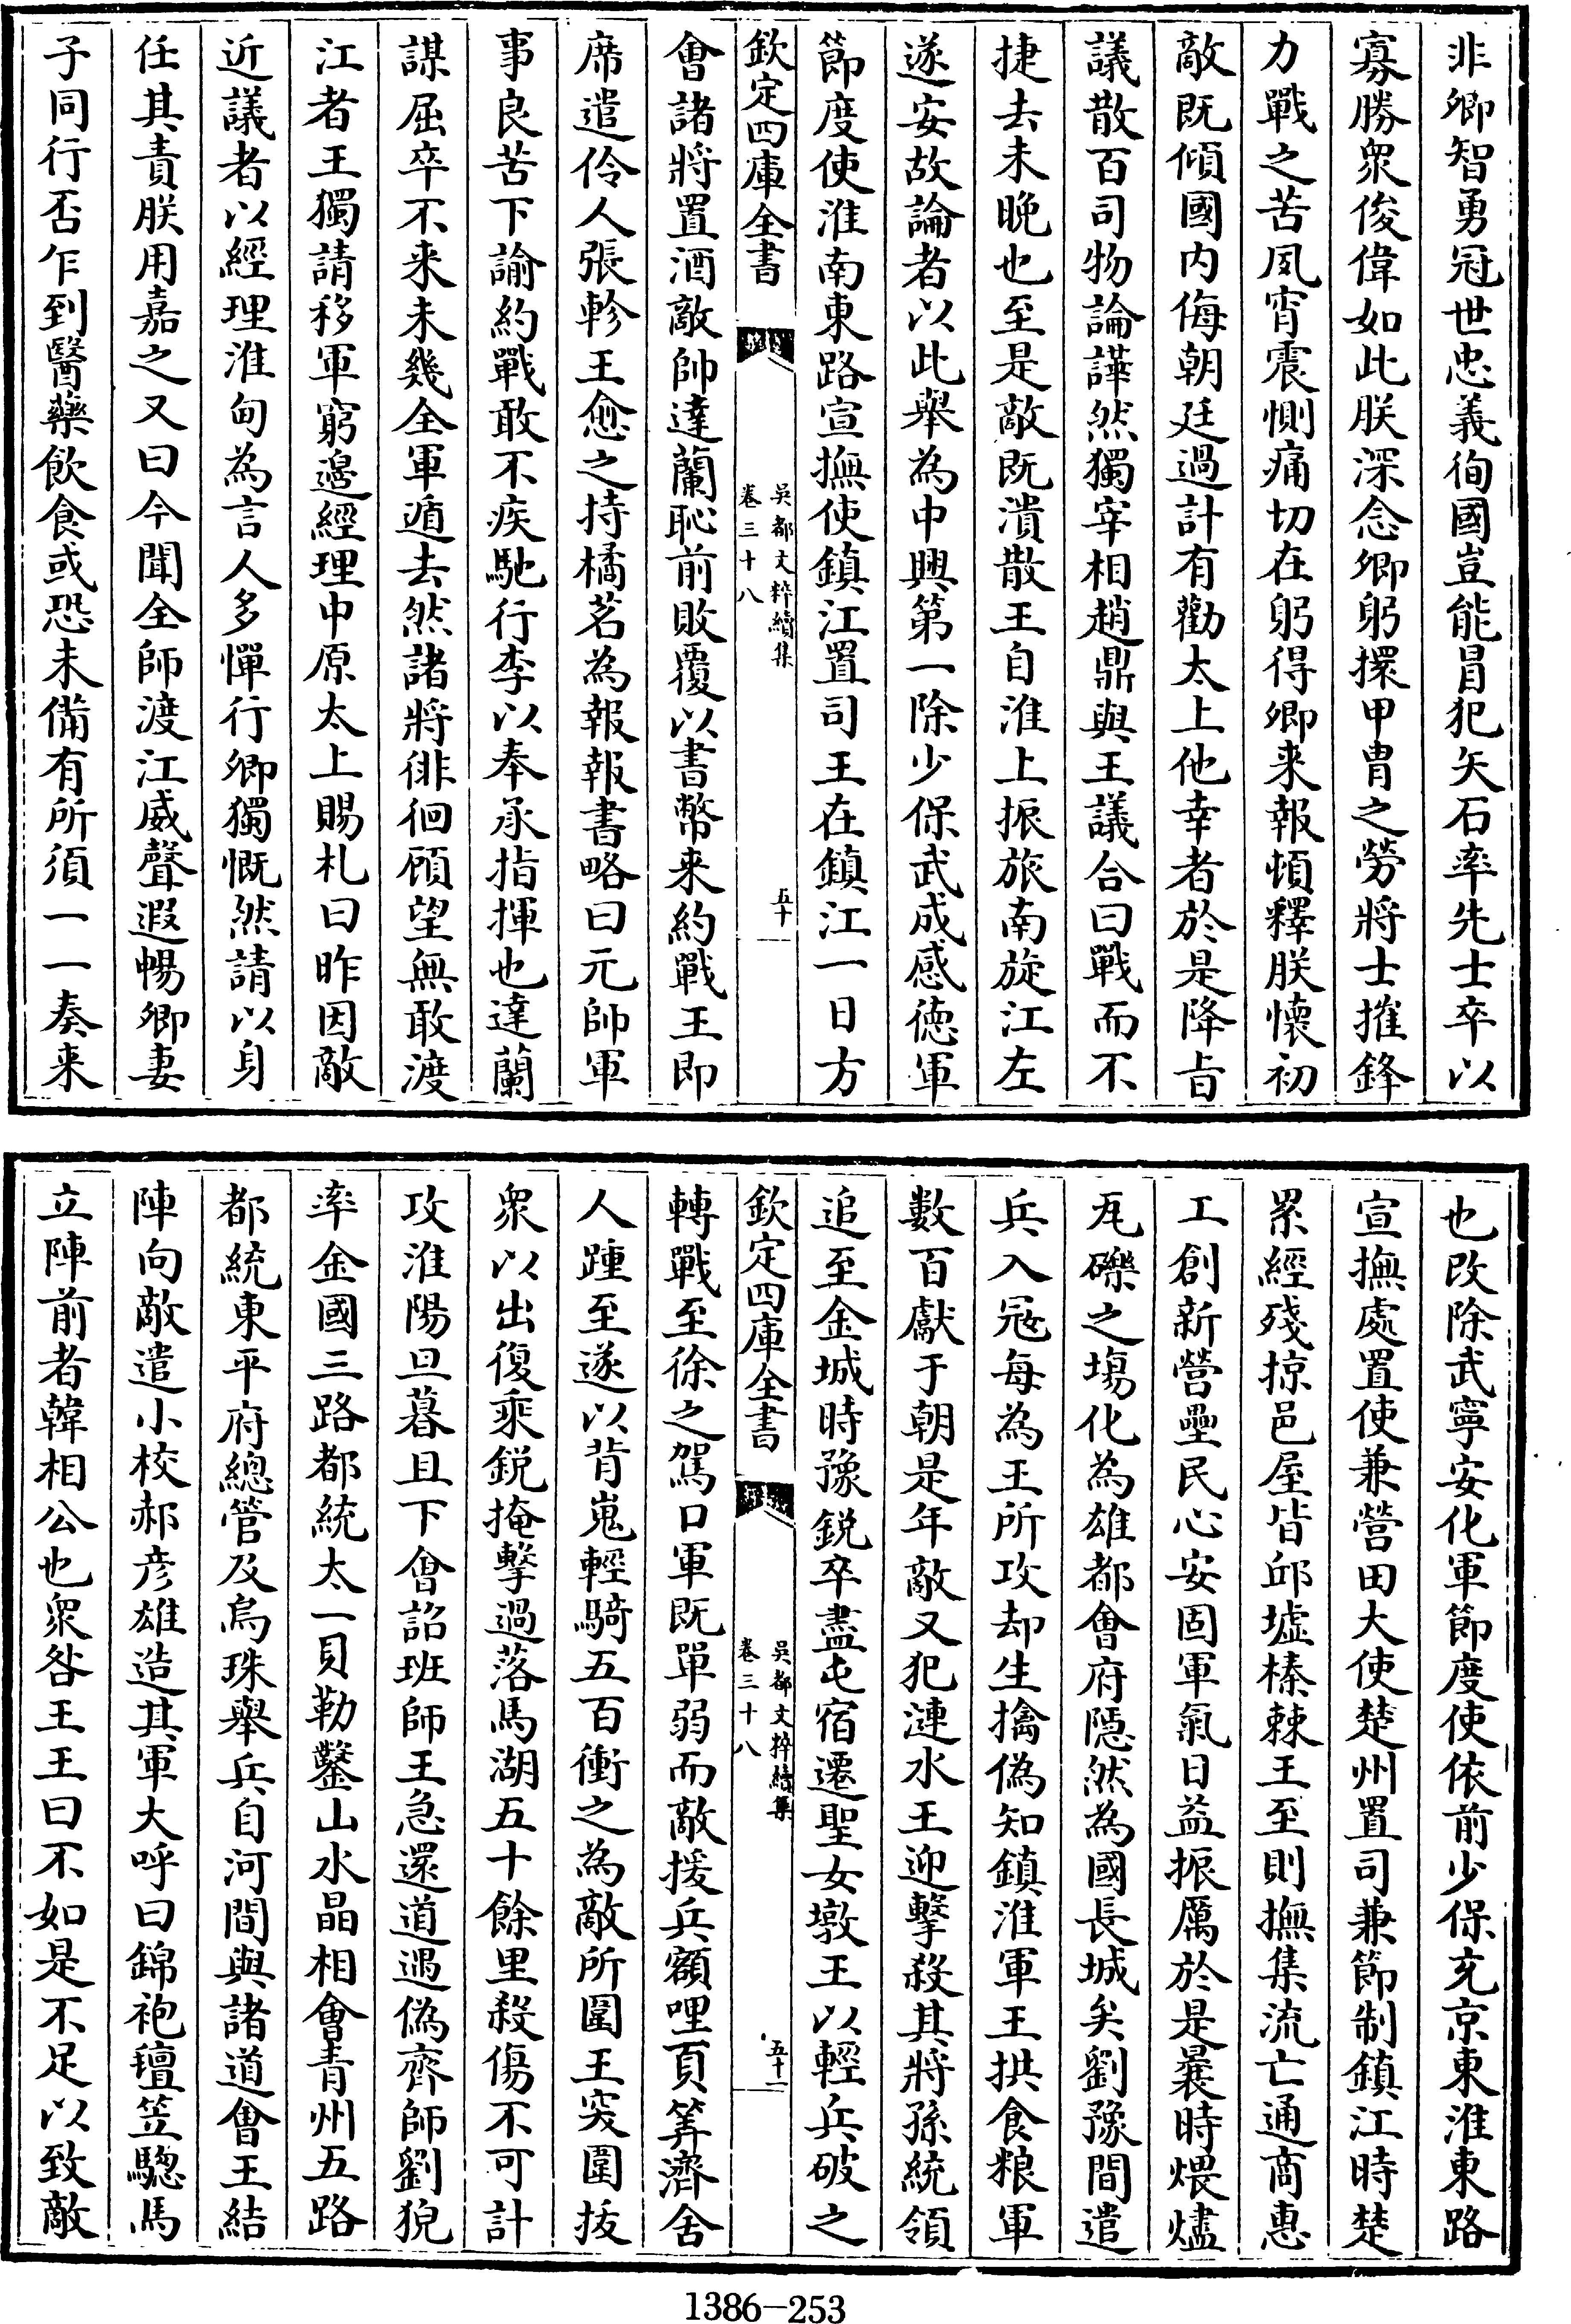 非卿智勇冠世忠義徇國豈能冒犯矢石率先士卒以
寡勝衆俊偉如此朕深念卿躬擐甲胄之勞將士摧鋒
力戰之苦夙宵震惻痛切在躬得卿来報頓釋朕懷初
敵既傾國内侮朝廷過計有勸太上他幸者於是降旨
議散百司物論譁然獨宰相趙鼎與王議合曰戰而不
捷去未晚也至是敵既潰散王自淮上振旅南旋江左
遂安故論者以此舉為中興第一除少保武成感德軍
節度使淮南東路宣撫使鎮江置司王在鎮江一日方
欽定四庫全書
吳都文粹續集
卷三十八
五十
會諸將置酒敵帥達蘭恥前敗覆以書幣来約戰王即
席遣伶人張軫王愈之持橘茗為報報書略曰元帥軍
事良苦下諭約戰敢不疾馳行李以奉承指揮也達蘭
謀屈卒不来未幾全軍遁去然諸將徘徊顧望無敢渡
江者王獨請移軍窮邊經理中原太上賜札曰昨因敵
近議者以經理淮甸為言人多憚行卿獨慨然請以身
任其責朕用嘉之又曰今聞全師渡江威聲遐暢卿妻
子同行否乍到醫藥飲食或恐未備有所須一一奏来
也改除武寧安化軍節度使依前少保充京東淮東路
宣撫處置使兼營田大使楚州置司兼節制鎮江時楚
累經殘掠邑屋皆邱墟榛棘王至則撫集流亡通商惠
工創新營壘民心安固軍氣日益振厲於是曩時煨燼
瓦礫之塲化為雄都會府隱然為國長城矣劉豫間遣
兵入冦每為王所攻却生擒偽知鎮淮軍王拱食粮軍
數百獻于朝是年敵又犯漣水王迎擊殺其將孫統領
追至金城時豫鋭卒盡屯宿遷聖女墩王以輕兵破之
欽定四庫全書
吳都文粹續集
卷三十八
五十一
轉戰至徐之駕口軍既單弱而敵援兵額哩頁筭濟舍
人踵至遂以背嵬輕騎五百衝之為敵所圍王突圍拔
衆以出復乘鋭掩擊過落馬湖五十餘里殺傷不可計
攻淮陽旦暮且下會詔班師王急還道遇偽齊師劉猊
率金國三路都統太一貝勒鑿山水晶相會青州五路
都統東平府總管及烏珠舉兵自河間與諸道會王結
陣向敵遣小校郝彦雄造其軍大呼曰錦袍氊笠驄馬
立陣前者韓相公也衆咎王王曰不如是不足以致敵
1386-253